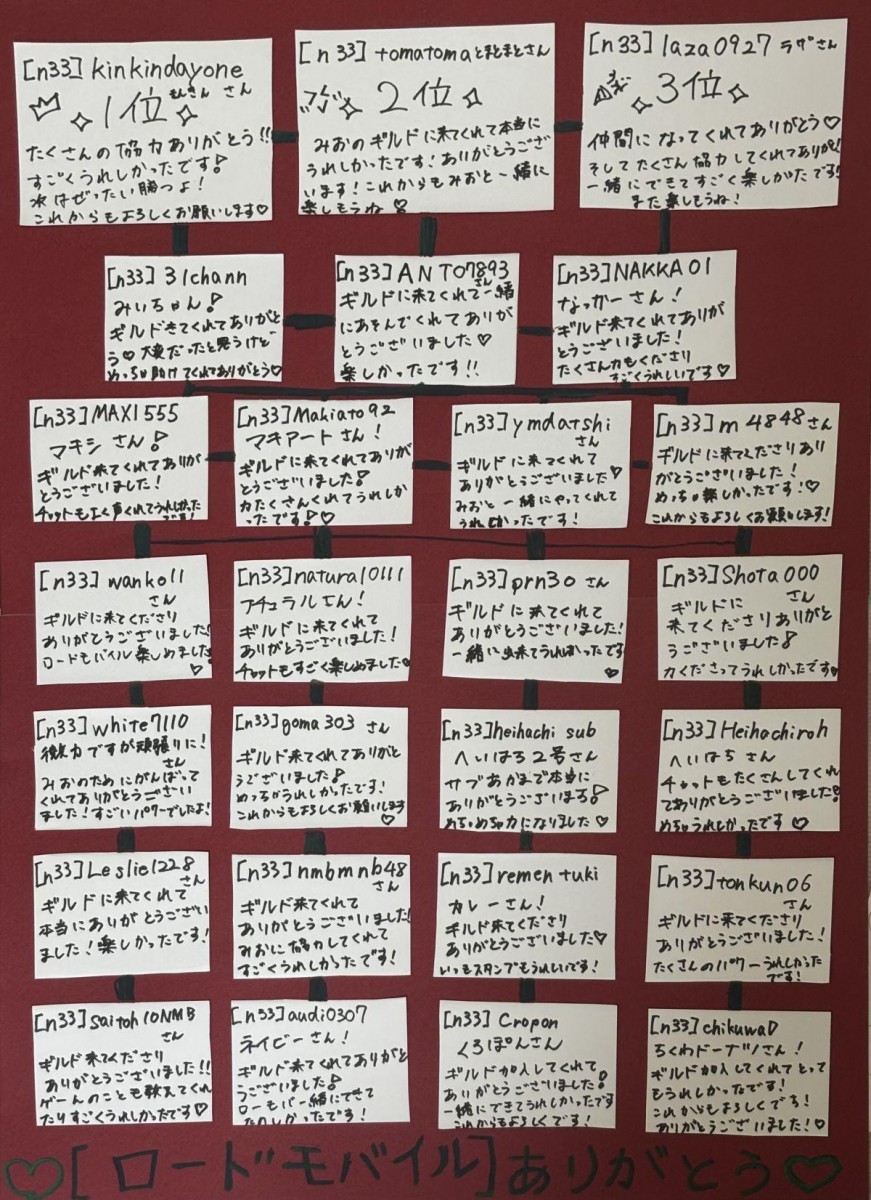 [n33] kinkindayone
1位 きんきん さん
たくさんの協力ありがとう!!
すごくうれしかったです!
次はぜったい勝つよ!
これからもよろしくお願いします♡
[n33] tomatoma とまとまとさん
2位
みおのギルドに来てくれて本当に
うれしかったです!ありがとうござ
います!これからもみおと一緒に
楽しもうね!
[n33] laza0927 ラザさん
3位
仲間になってくれてありがとう♡
そしてたくさん協力してくれてありがとう!
一緒にできてすごく楽しかったです!
また楽しもうね!
[n33] 31chann
みいちゃん!
ギルドきてくれてありがと
う♡大変だったと思うけど
めっちゃ助けてくれてありがとう♡
[n33] ANTO7893
さん
ギルドに来てくれて一緒
にあそんでくれてありが
とうございました♡
楽しかったです!!
[n33] NAKKA01
なっかーさん!
ギルド来てくれてありが
とうございました!
たくさん力もくださり
すごくうれしいです♡
[n33] MAX1555
マキシさん!
ギルド来てくれてありが
とうございました!
チャットもよく声くれてうれしかった
です!
[n33] Makiato92
マキアートさん!
ギルドに来てくれてありが
とうございました!
力たくさんくれてうれしか
ったです!♡
[n33] ymdatshi
さん
ギルドに来てくれて
ありがとうございました♡
みおと一緒にやってくれて
うれしかったです!
[n33] m4848さん
ギルドに来てくださりあり
がとうございました!
めっちゃ楽しかったです!♡
これからもよろしくお願いします!
[n33] wanko11
さん
ギルドに来てくださり
ありがとうございました!
ロードモバイル楽しめました!
♡
[n33] natural0111
ナチュラルさん!
ギルドに来てくれて
ありがとうございました!
チャットもすごく楽しめました♡
[n33] prn30 さん
ギルドに来てくれて
ありがとうございました!
一緒に出来てうれしかったです
♡
[n33] Shota000
さん
ギルドに
来てくださりありがと
うございました!
力くださってうれしかったです♡
[n33] white7110
微力ですが頑張りに!
さん
みおのためにがんばって
くれてありがとうござい
ました!すごいパワーでしたよ!
[n33] goma303 さん
ギルド来てくれてありがと
うございました!
めっちゃうれしかったです!
これからもよろしくお願いします
♡
[n33] heihachi sub
へいはち2号さん
サブあかまで本当に
ありがとうございまる!
めちゃめちゃ力になりました♡
[n33] Heihachiroh
へいはちさん
チャットもたくさんしてくれ
てありがとうございました!
めちゃうれしかったです♡
[n33] Leslie1228
さん
ギルドに来てくれて
本当にありがとうござい
ました!楽しかったです!
[n33] nmbmnb48
さん
ギルド来てくれて
ありがとうございました!
みおに協力してくれて
すごくうれしかったです!
[n33] rementuki
カレーさん!
ギルド来てくださり
ありがとうございました♡
いつもスタンプもうれしいです!
[n33] tonkun06
さん
ギルドに来てくださり
ありがとうございました!
たくさんのパワーうれしかった
です!
[n33] saitoh10NMB
さん
ギルド来てくださり
ありがとうございました!!
ゲームのことも教えてくれ
たりすごくうれしかったです♡
[n33] audi0307
ネイビーさん!
ギルド来てくれてありがと
うございました!
ローモバ一緒にできて
たのしかったです!
[n33] Cropon
くろぽんさん
ギルド加入してくれて
ありがとうございました!
一緒にできてうれしかったです
これからもよろしくです!
[n33] chikuwaD
ちくわドーナツさん!
ギルド加入してくれてとって
もうれしかったです!
これからもよろしくです!
ありがとうございました!♡
♡[ロードモバイル]ありがとう♡